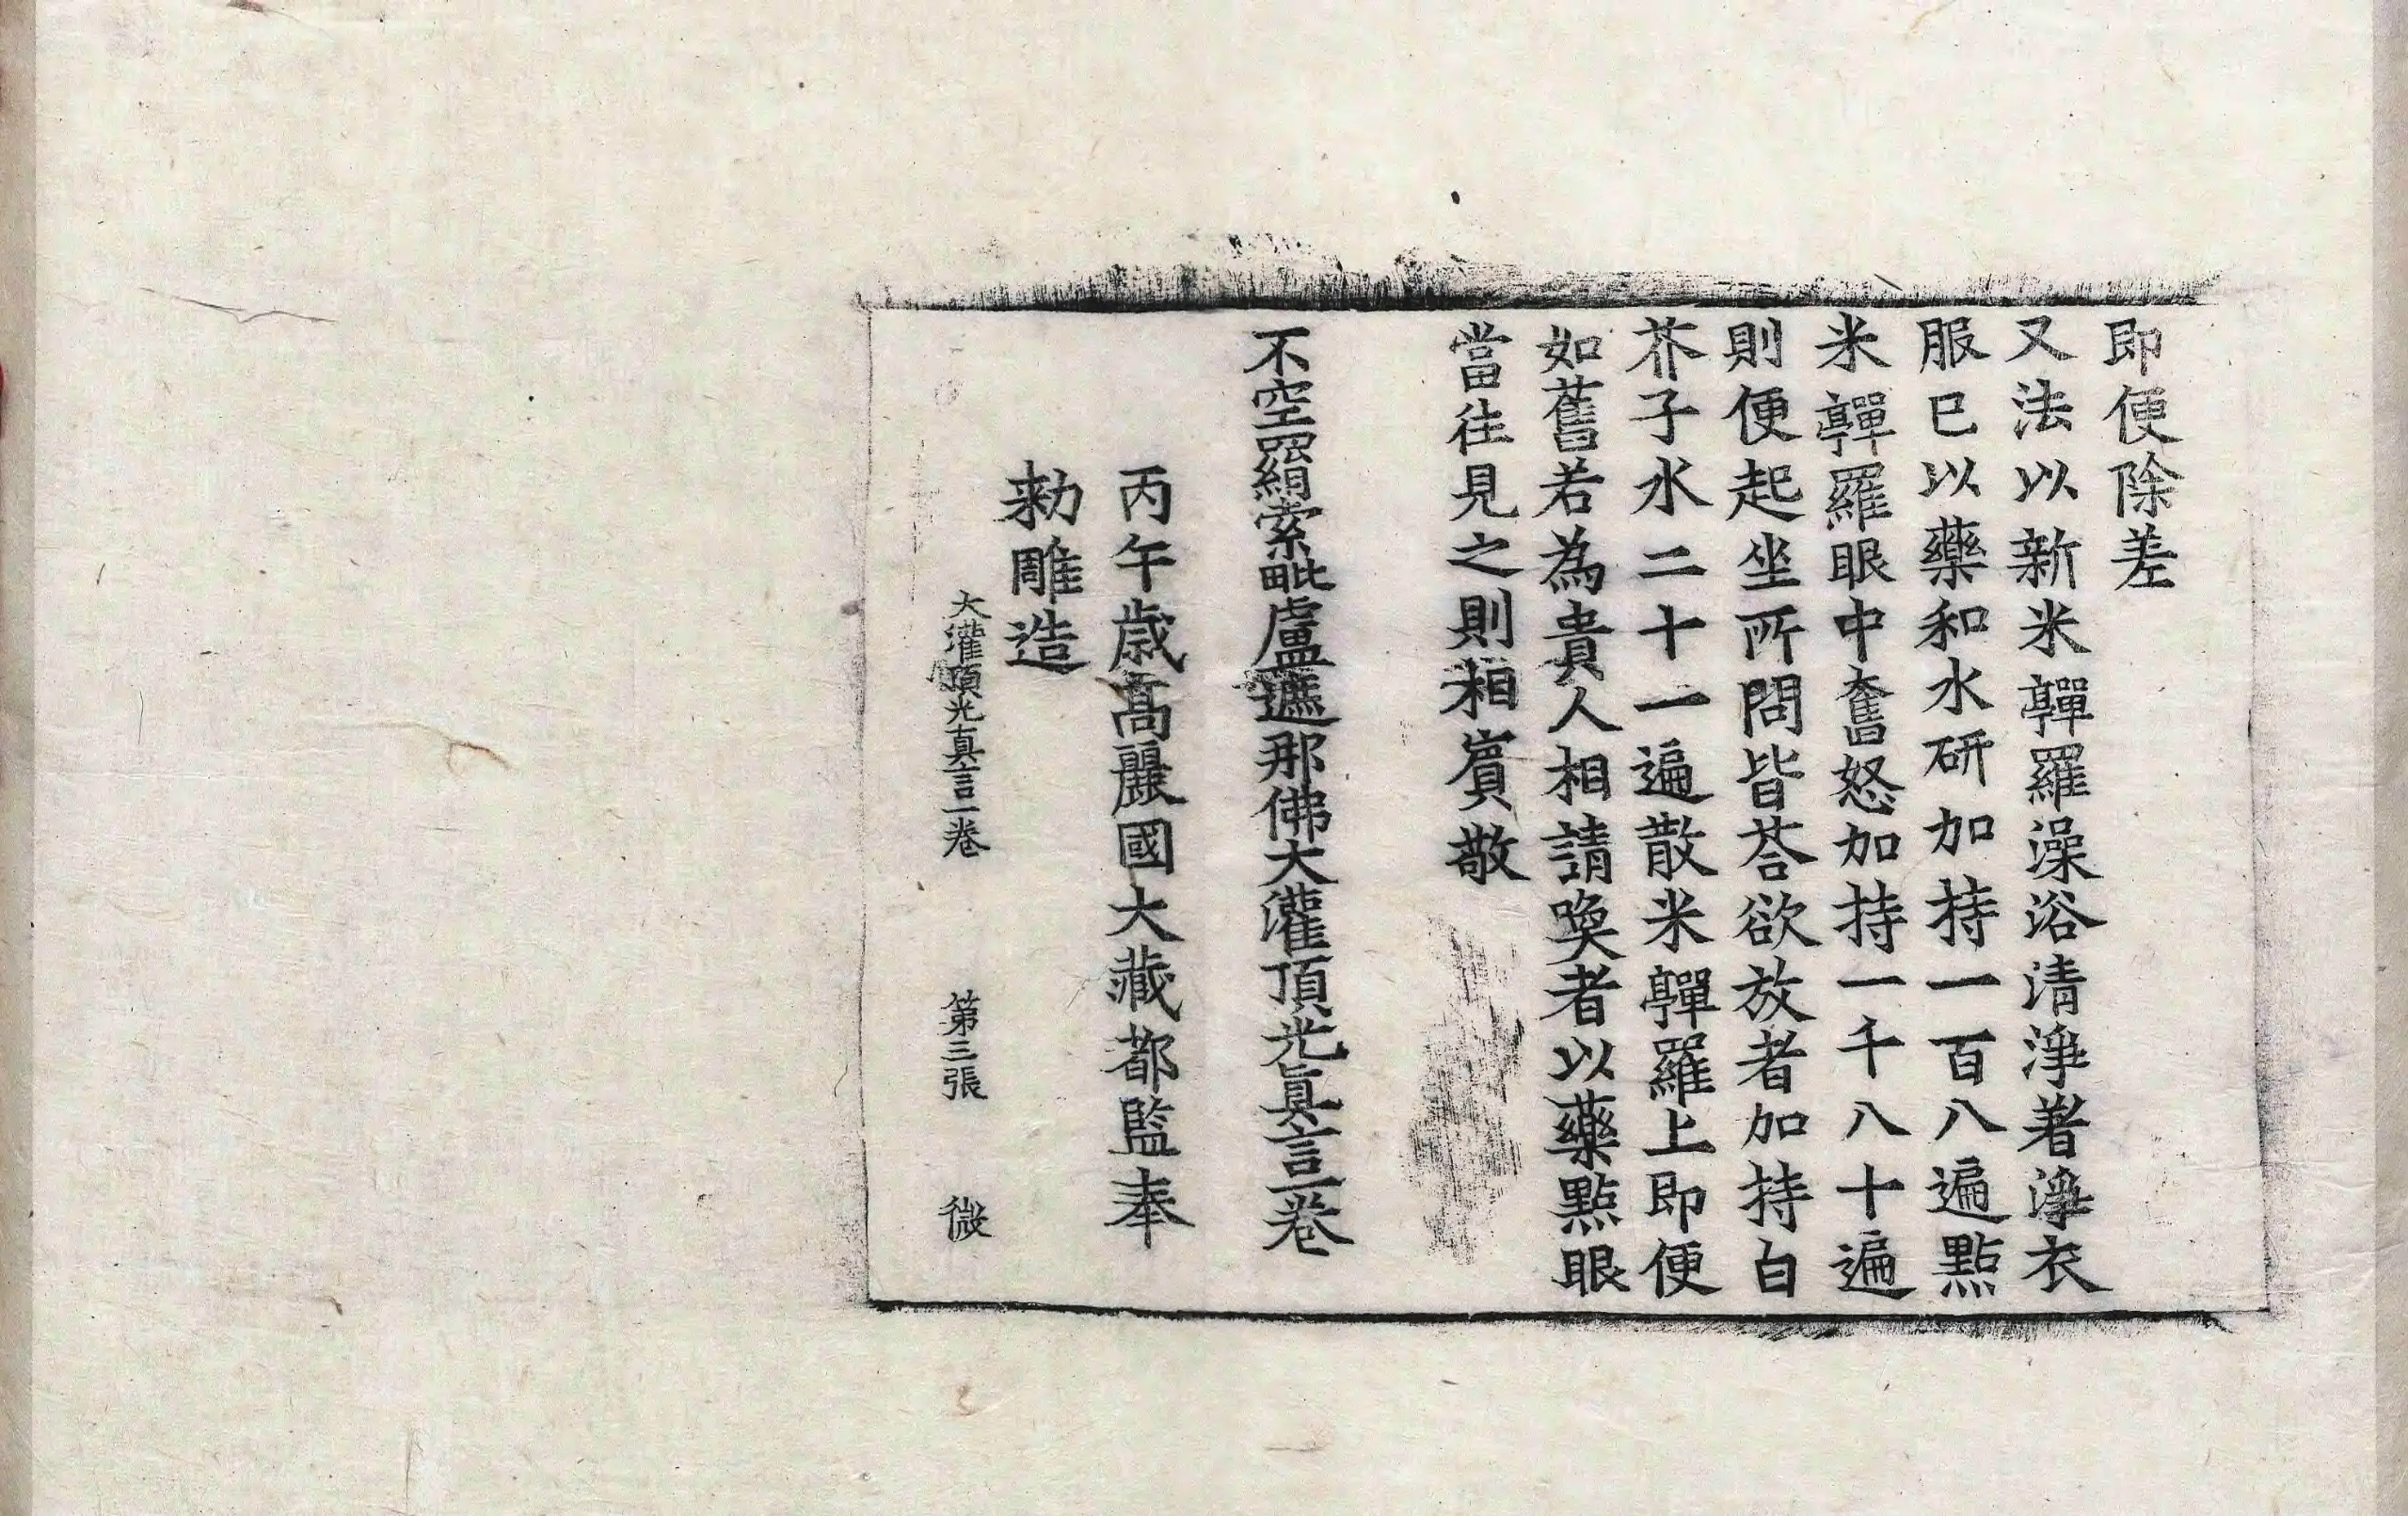 即便除差
又法以新米亸羅澡浴清淨著淨衣
服已以藥和水研加持一百八遍點
米亸羅眼中奮怒加持一千八十遍
則便起坐所問皆荅欲放者加持白
芥子水二十一遍散米亸羅上即便
如舊若為貴人相請喚者以藥點眼
當往見之則相賓敬
不空羂索毗盧遮那佛大灌頂光眞言一卷
丙午歲高麗國大藏都監奉
勑雕造
大灌頂光真言一卷 第三張 微